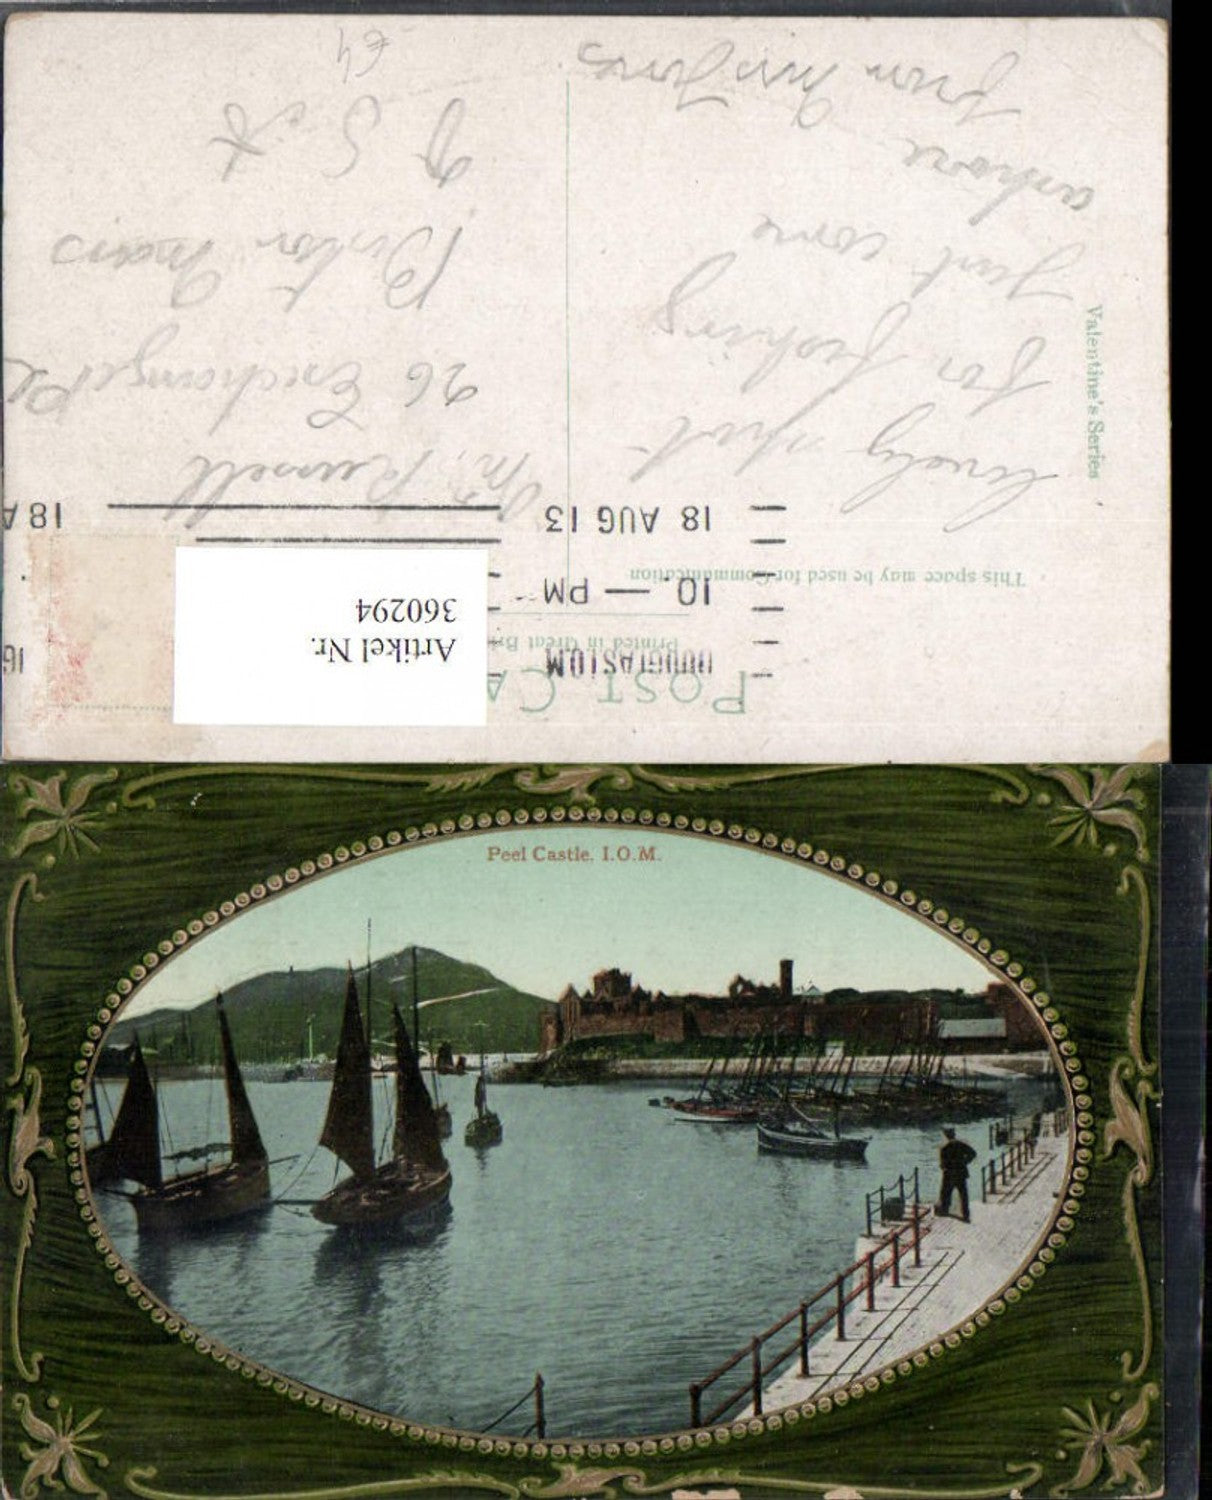 POST CA
Printed in Great Bri
This space may be used for Communication
Valentine's Series
DOUGLAS IOM
10 — PM
18 AUG 13
18 A
Artikel Nr.
360294
lovely spot
for fishing
Just come
ashore
from
Mr. Russell
26 Exchange Pl
£4
Peel Castle. I.O.M.